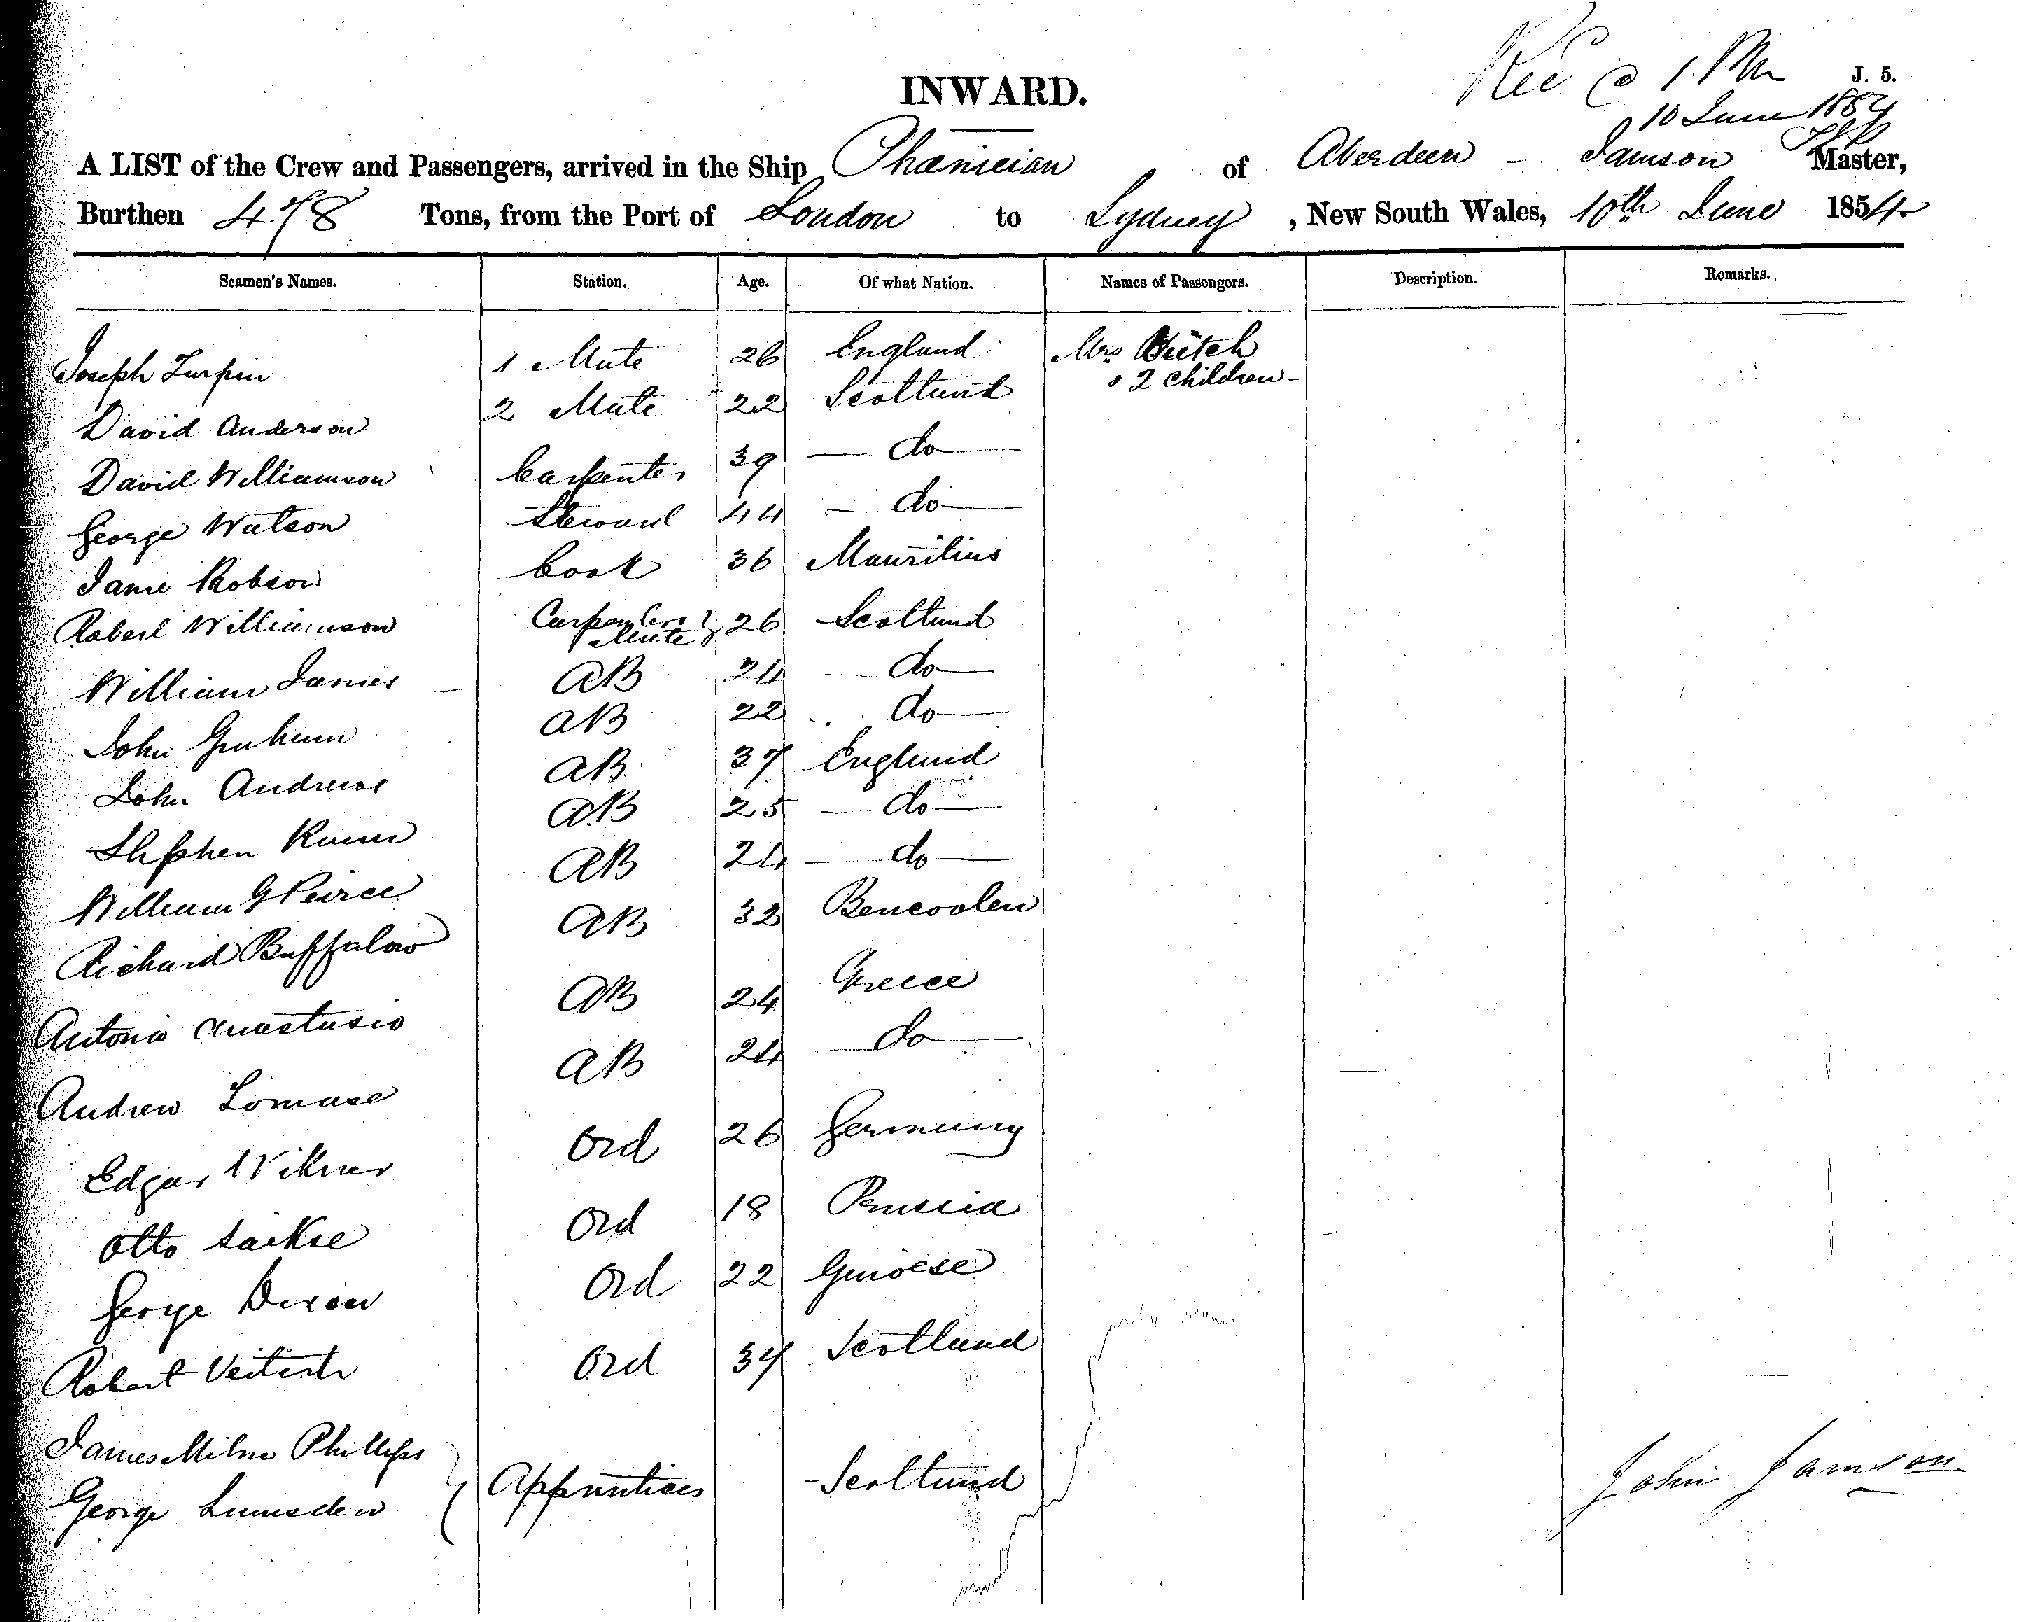 INWARD.
Rec @ 1 PM
J. 5.
10 June 1854
A LIST of the Crew and Passengers, arrived in the Ship Phœnician of Aberdeen - Jamson Master,
Burthen 478 Tons, from the Port of London to Sydney, New South Wales, 10th June 1854
Seamen's Names. Station. Age. Of what Nation. Names of Passengers. Description. Remarks.
Joseph Turpin 1 Mate 26 England Mrs
& 2 children
David Anderson 2 Mate 22 Scotland
David Williamson Carpenter 39 - do -
George Watson Steward 44 - do -
Jame Robson Cook 36 Mauritius
Robert Williamson Carpenters Mate 26 Scotland
William James AB 24 - do -
John Graham AB 22 do -
John Andrews AB 37 England
Stephen AB 25 - do -
William G Peirce AB 24 - do -
Richard Buffalow AB 32 Bencoolen
Antonio Anastasio AB 24 Greece
Andrew Lomase AB 24 - do -
Edgar Ord 26 Germany
Otto Sackse Ord 18 Prussia
George Dixon Ord 22 Genoese
Robert Veitch Ord 37 Scotland
James Milne Phillips
Apprentices Scotland
George Lumsden
John Jamson